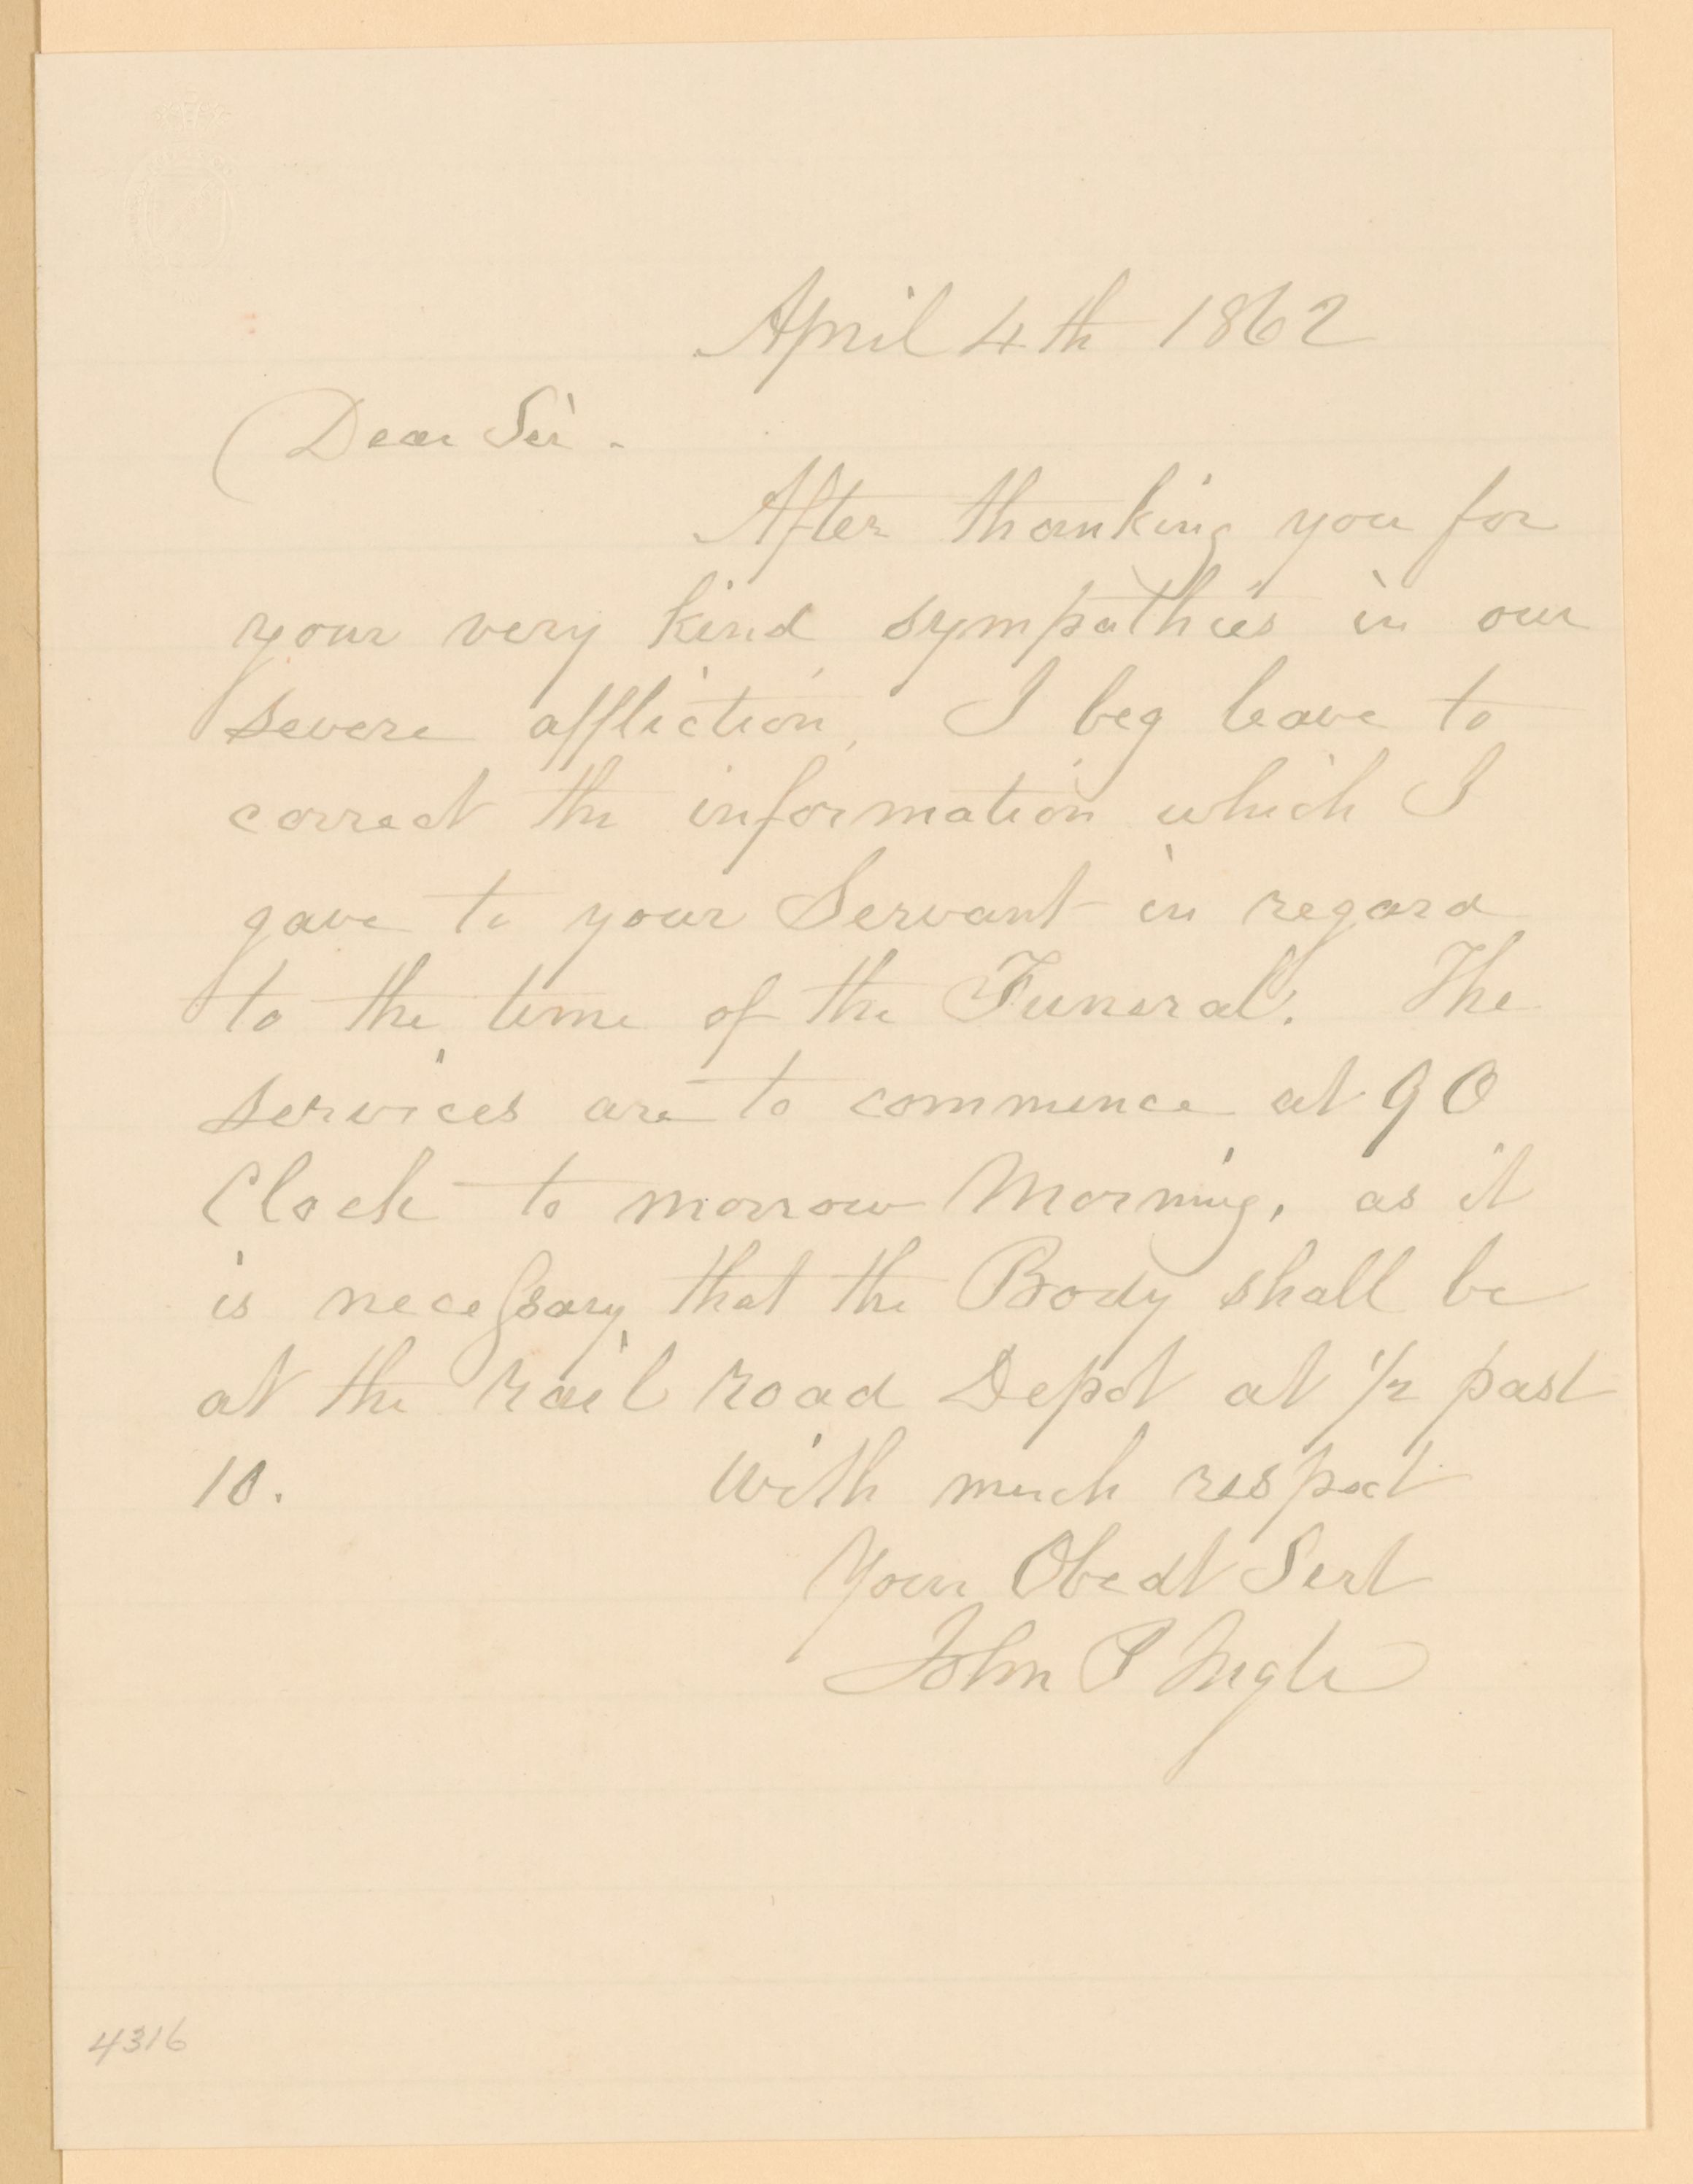 April 4th 1862
Dear Sir.
After thanking you for
your very kind sympathies in our
severe affliction, I beg leave to
correct the information which I
gave to your Servant in regard
to the time of the Funeral. The
services are to commence at 9 O
Clock to morrow Morning, as it
is necessary that the Body shall be
at the rail road Depot at 1/2 past
10. With much respect
Your Obedt Sert
John P Ingle
4316